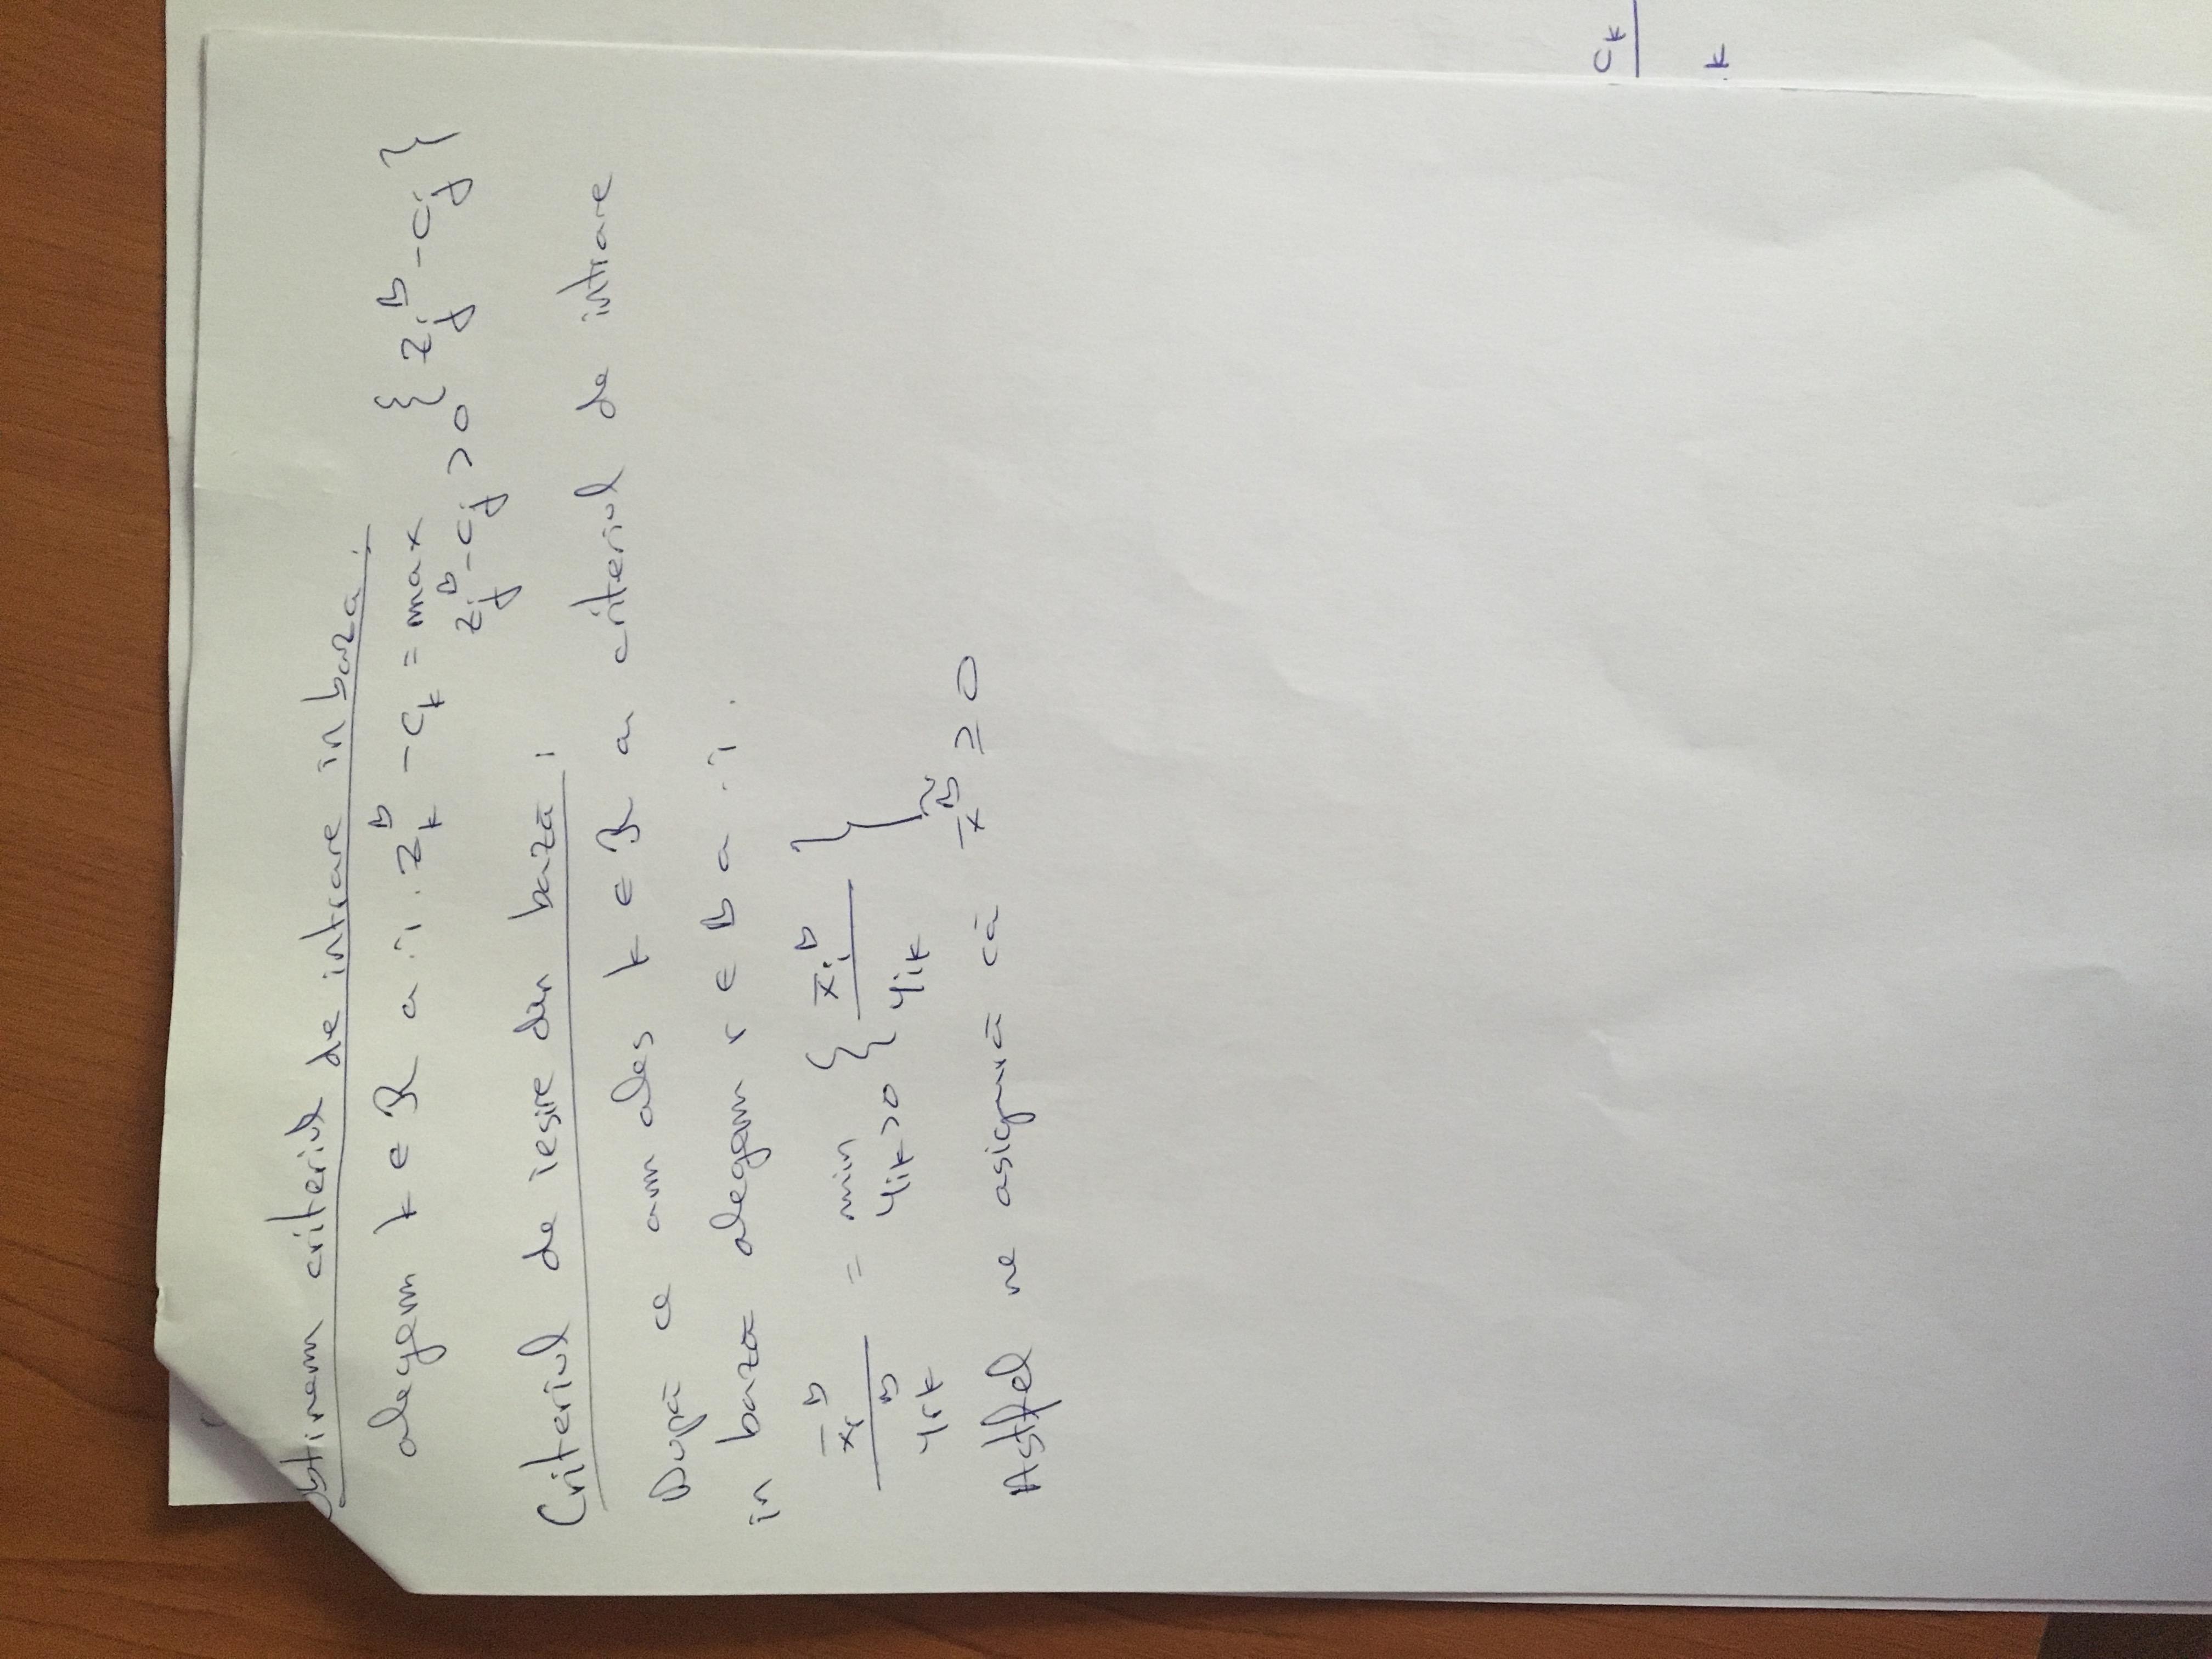 Obtinem criteriul de intrare in baza:
alegem k ∈ R a.î. z_k^B - c_k = max_{z_j^B - c_j > 0} { z_j^B - c_j }
Criteriul de iesire din bază:
După ce am ales k ∈ R cu criteriul de intrare
in bază alegem r ∈ B a.î.
x̄_r^B / y_rk^B = min_{y_ik > 0} { x̄_i^B / y_ik }
Astfel ne asigură că x̄^B̃ ≥ 0
c_k
k